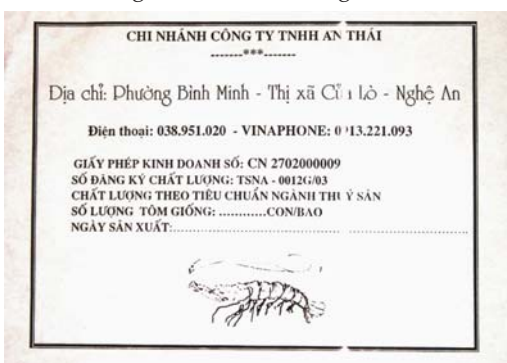 CHI NHÁNH CÔNG TY TNHH AN THÁI
-------***-------
Địa chỉ: Phường Bình Minh - Thị xã Cửa Lò - Nghệ An
Điện thoại: 038.951.020 - VINAPHONE: 0913.221.093
GIẤY PHÉP KINH DOANH SỐ: CN 2702000009
SỐ ĐĂNG KÝ CHẤT LƯỢNG: TSNA - 0012G/03
CHẤT LƯỢNG THEO TIÊU CHUẨN NGÀNH THUỶ SẢN
SỐ LƯỢNG TÔM GIỐNG: ............CON/BAO
NGÀY SẢN XUẤT:............................................................